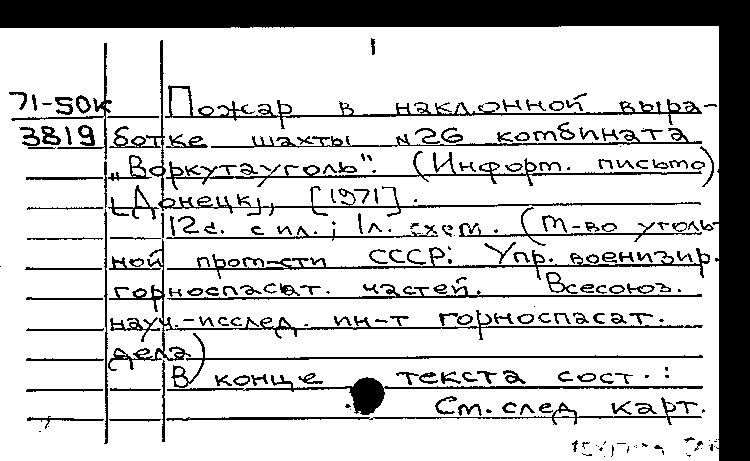 71-50к Пожар в наклонной выра-
3819 ботке шахты №26 комбината
„Воркутауголь". (Информ. письмо).
[Донецк], [1971].
12с. с ил.; 1л. схем. (М-во уголь-
ной пром-сти СССР: Упр. военизир.
горноспасат. частей. Всесоюз.
науч.-исслед. ин-т горноспасат.
дела)
В конце текста сост.:
См. след карт.